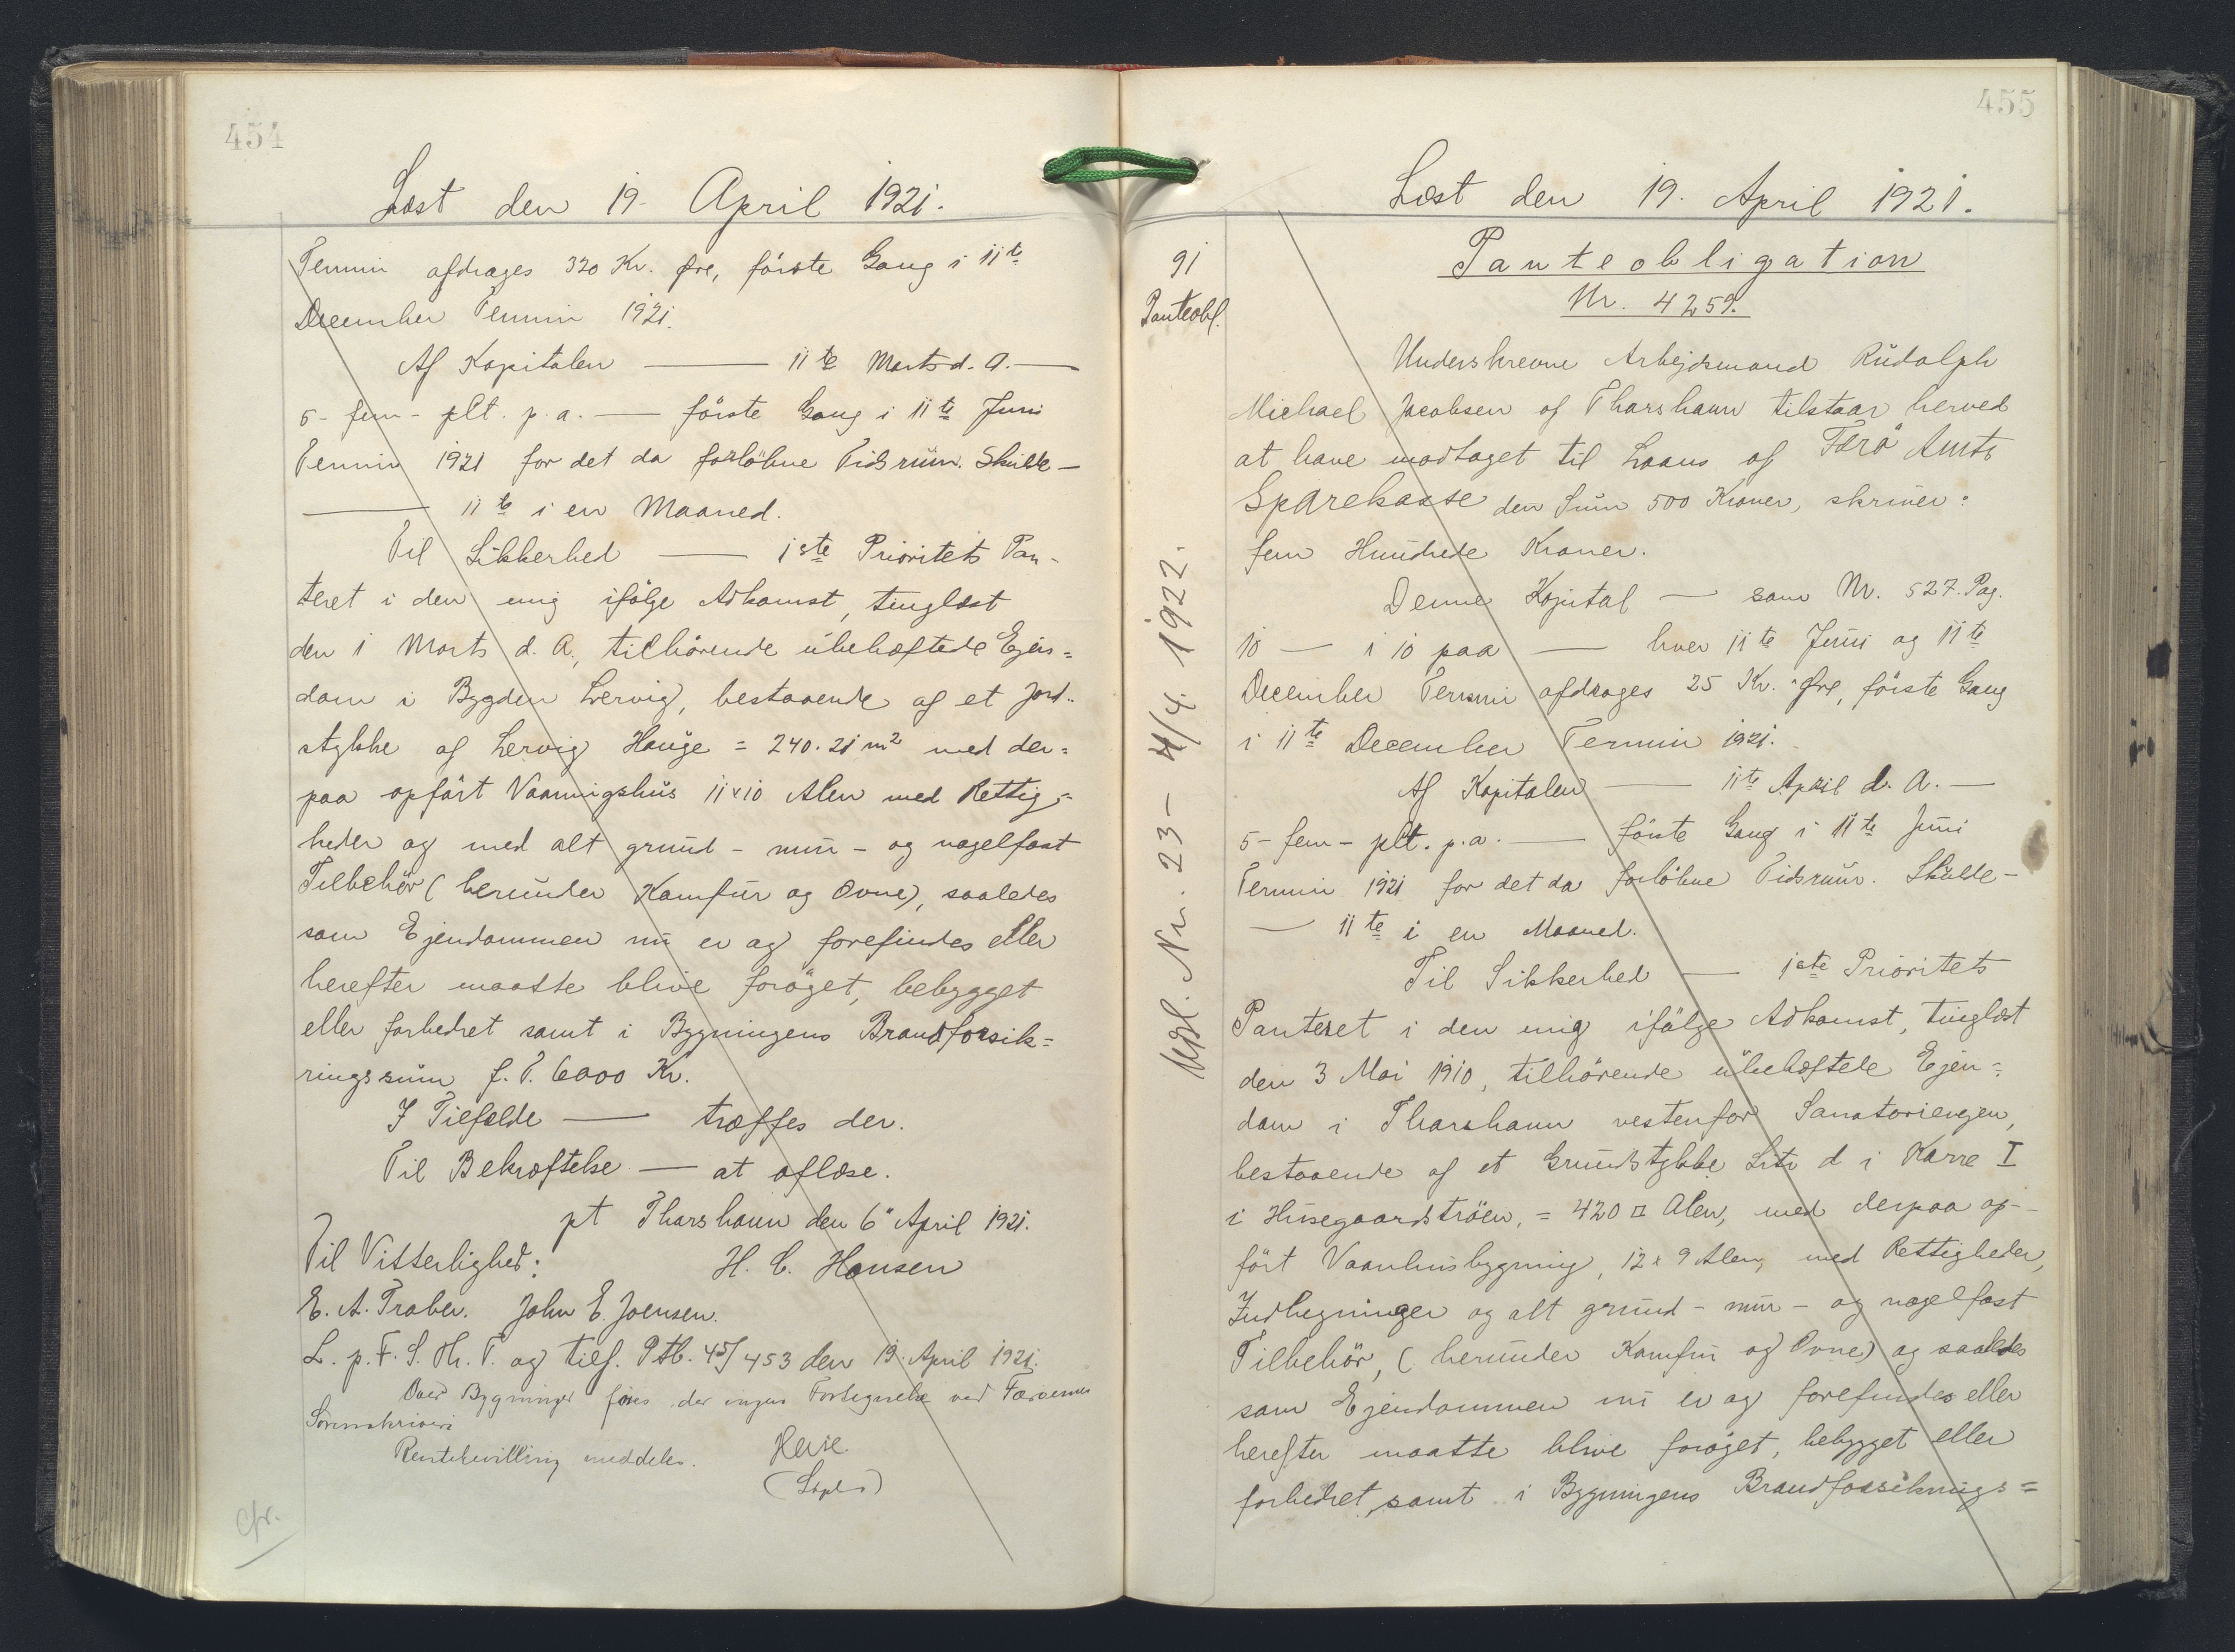 454
Læst den 19. April 1921.
Termin afdrages 320 Kr. Øre, förste Gang i 11te
December Termin 1921.
Af Kapitalen — 11te Marts d. A. —
5 - fem - pCt. p. a. — förste Gang i 11te Juni
Termin 1921 for det da forløbne Tidsrum. Skulde —
— 11te i en Maaned.
Til Sikkerhed — 1ste Prioritets Pan-
teret i den mig ifölge Adkomst, tinglæst
den 1 Marts d. A., tilhörende ubehæftede Ejen=
dom i Bygden Lervig, bestaaende af et Jord-
stykke af Lervig Hauge = 240.21 m2 med der=
paa opfört Vaaningshus 11x10 Alen med Rettig=
heder og med alt grund - mur - og nagelfast
Tilbehör (herunder Komfur og Ovne), saaledes
som Ejendommen nu er og forefindes eller
herefter maatte blive foröget, bebygget
eller forbedret samt i Bygningens Brandforsik=
ringssum f. T. 6000 Kr.
I Tilfælde — træffes der.
Til Bekræftelse — at aflæse.
pt Thorshavn den 6" April 1921.
Til Vitterlighed: H. C. Hansen
E. A. Traber. John E. Joensen.
L. p. F. S. Th. T. og tilf. Ptb. 45/453 den 19. April 1921.
Over Bygninger föres der ingen Fortegnelse ved Færøernes
Sorenskriveri
Rentebevilling meddeles.
cfr.
455
Læst den 19. April 1921.
91
Panteobl.
Panteobligation
Nr. 4259.
Underskrevne Arbejdsmand Rudolph
Michael Jacobsen af Thorshavn tilstaar herved
at have modtaget til Laans af Færö Amts
Sparekasse den Sum 500 Kroner, skriver:
fem Hundrede Kroner.
Denne Kapital — som Nr. 527. Pag.
10 — i 10 paa — hver 11te Juni og 11te
December Termin afdrages 25 Kr. " Øre, förste Gang
i 11te December Termin 1921.
Af Kapitalen — 11te April d. A. —
5 - fem - pCt. p. a. — förste Gang i 11te Juni
Termin 1921 for det da forløbne Tidsrum. Skulde —
— 11te i en Maaned.
Til Sikkerhed — 1ste Prioritets
Panteret i den mig ifölge Adkomst, tinglæst
den 3 Mai 1910, tilhörende ubehæftede Ejen=
dom i Thorshavn vestenfor Sanatorievejen,
bestaaende af et Grundstykke Litr d i Karre I
i Husegaardströen, = 420 □ Alen, med derpaa op-
fört Vaanhusbygning, 12 x 9 Alen, med Rettigheder,
Indhegninger og alt grund - mur - og nagelfast
Tilbehör, (herunder Komfur og Ovne) og saaledes
som Ejendommen nu er og forefindes eller
herefter maatte blive foröget, bebygget eller
forbedret, samt i Bygningens Brandforsikrings=
Udsl. Nr. 23 - 4/4. 1922.